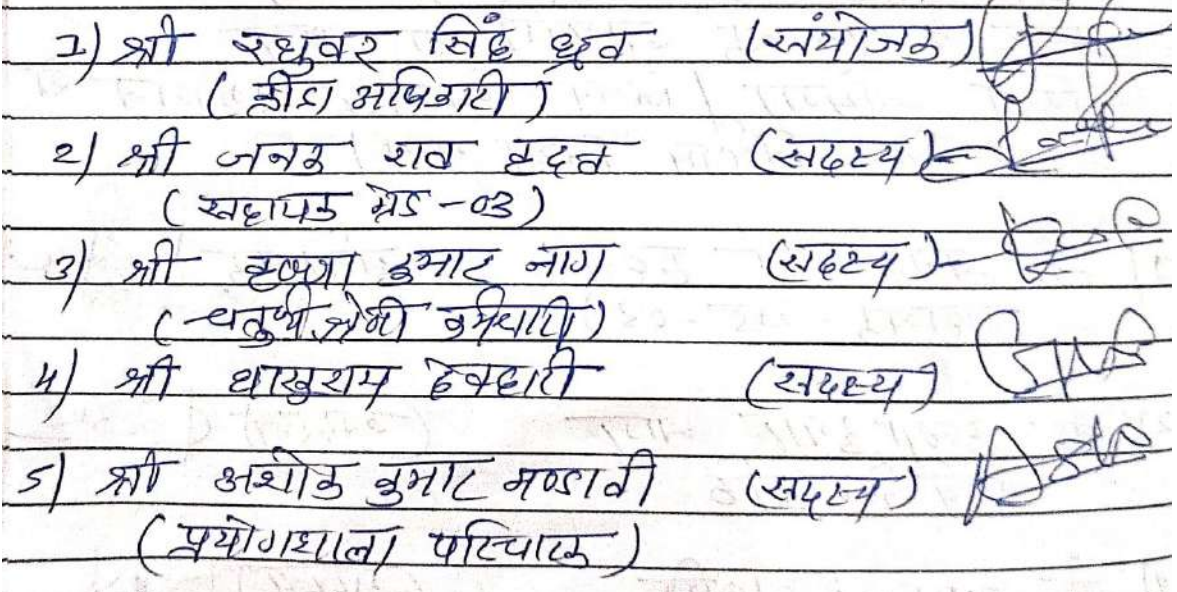 1) श्री रघुवर सिंह ध्रुव (संयोजक)
(क्रीडा अधिकारी)
2) श्री जनक राव (सदस्य)
(सहायक ग्रेड -03)
3) श्री कृष्णा कुमार नाग (सदस्य)
(चतुर्थ श्रेणी कर्मचारी)
4) श्री (सदस्य)
5) श्री अशोक कुमार मण्डावी (सदस्य)
(प्रयोगशाला परिचारक)